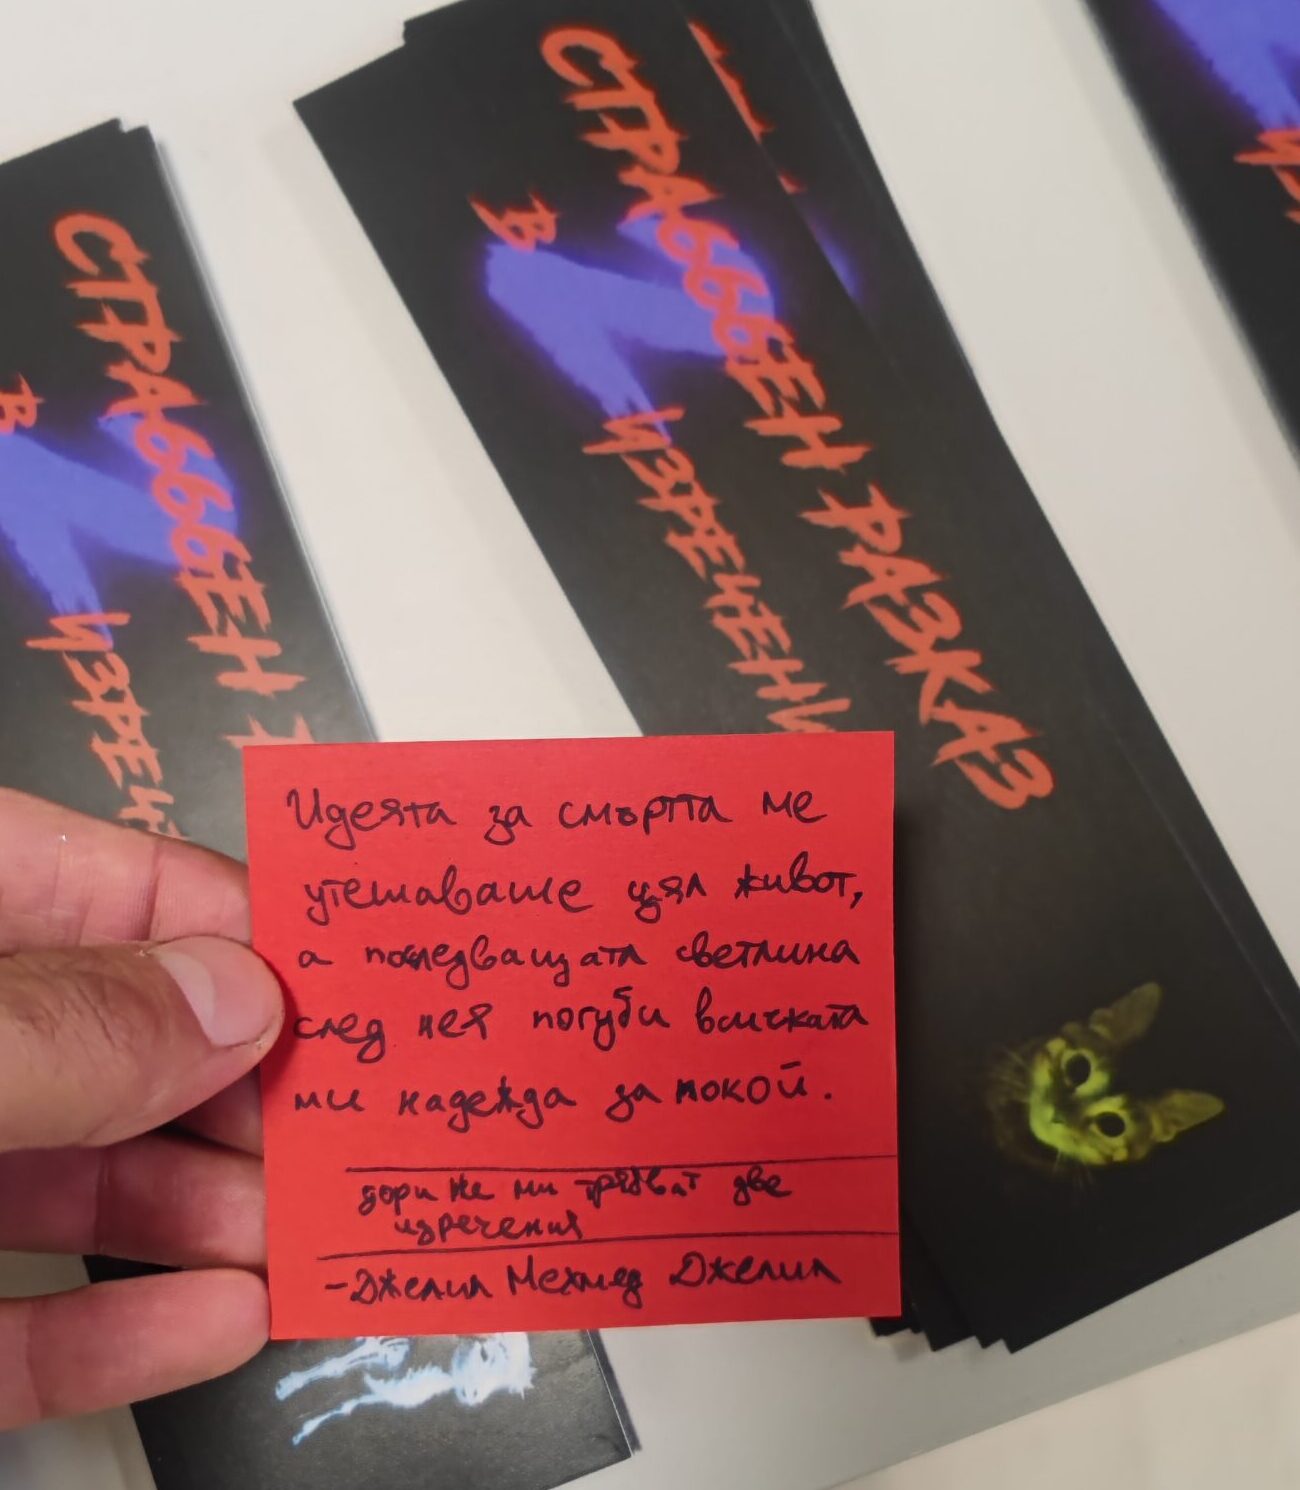 СТРАЬЬЬЕН
В
ИЗРЕЧ
СТРАЬЬЬЕН РАЗКАЗ
В 2
ИЗРЕЧЕНИ
Идеята за смъртта ме
утешаваше цял живот,
а последващата светлина
след нея погуби всичката
ми надежда за покой.
дори не ми трябват две
изречения
-Джелил Мехмед Джелил